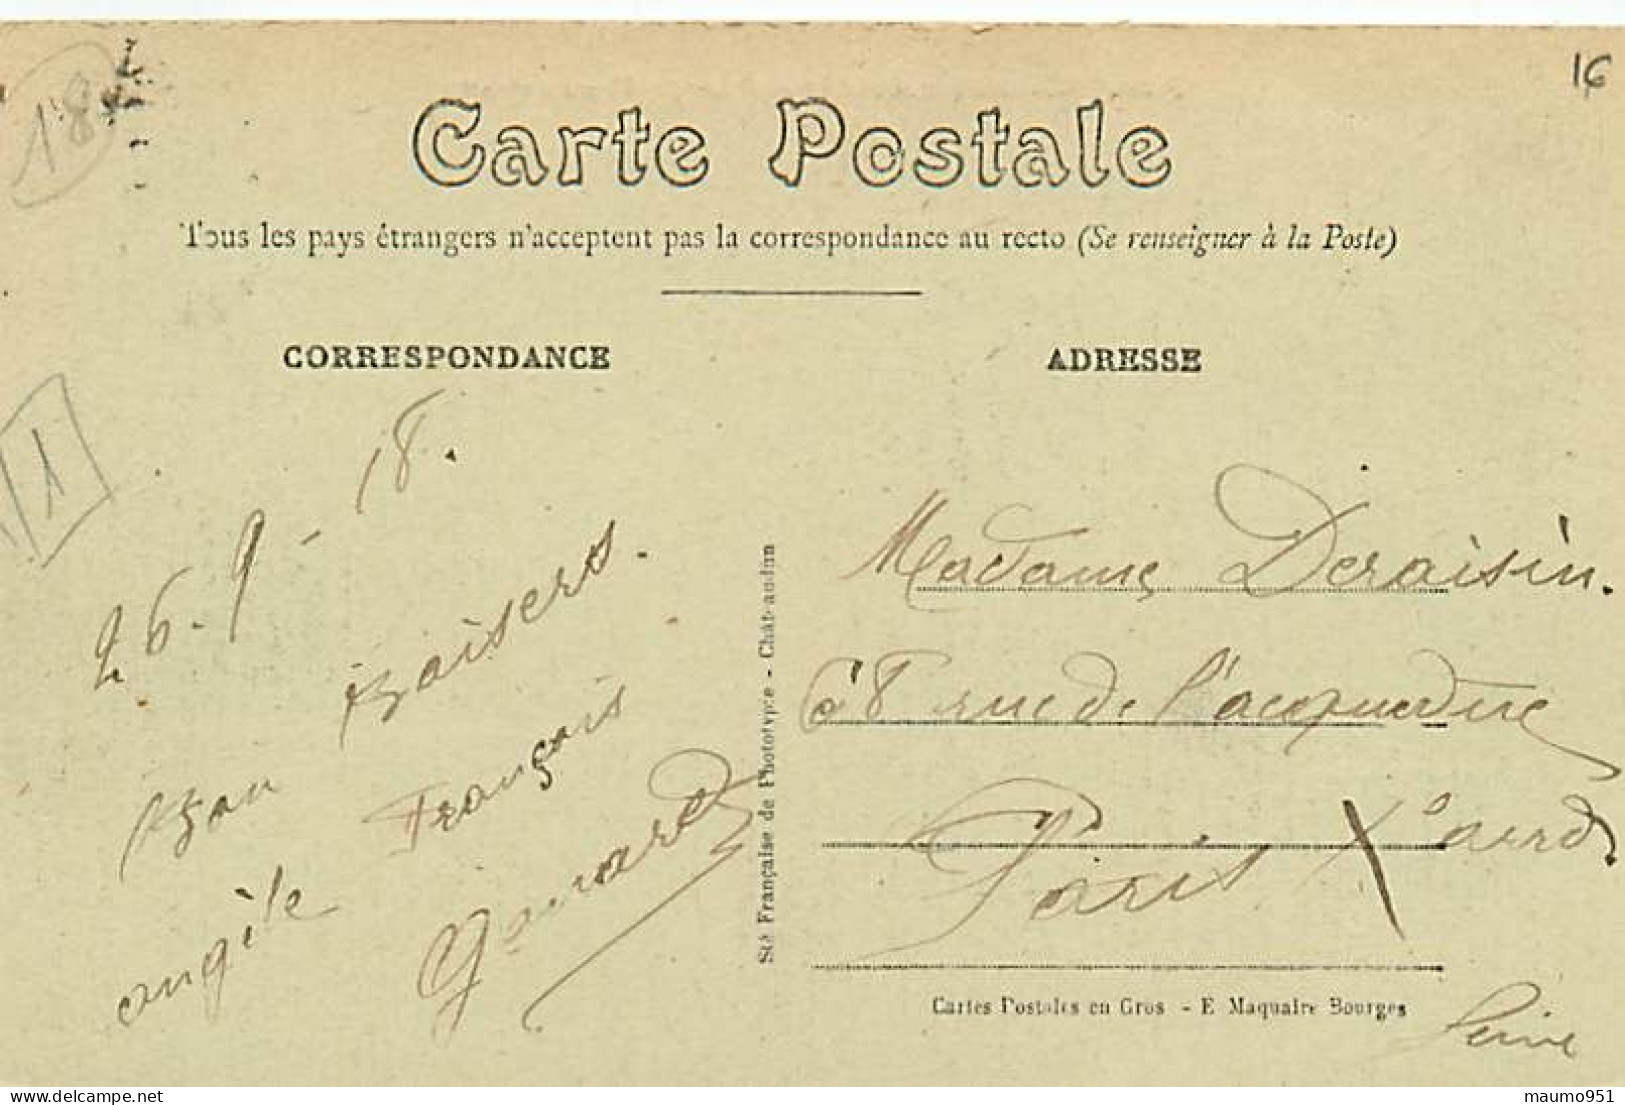 18
16
Carte Postale
Tous les pays étrangers n'acceptent pas la correspondance au recto (Se renseigner à la Poste)
CORRESPONDANCE
ADRESSE
1
26-9-18.
Bon Baisers.
angèle François
Gouvard
Sté Française de Phototypie - Châteaudun
Madame Deraisin.
68 rue de l'acqueduc
Paris X e arrd
Seine
Cartes Postales en Gros - E Maquaire Bourges
delcampe.net
maumo951